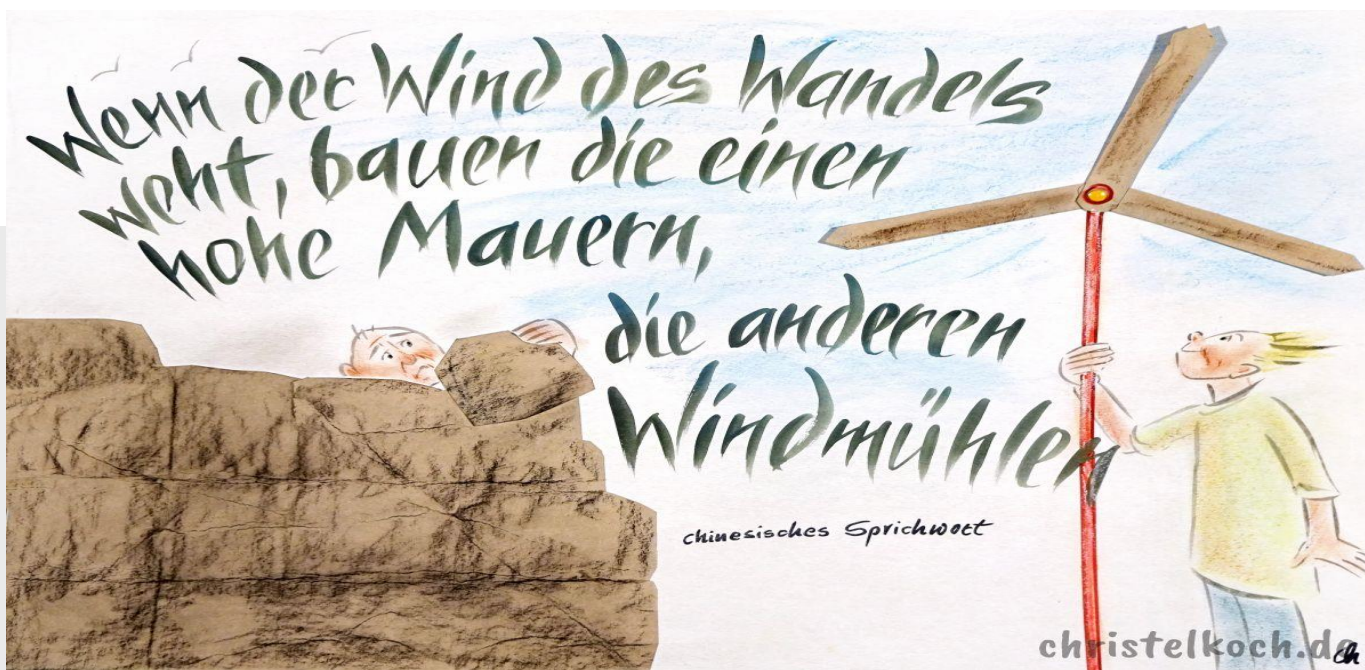 Wenn der Wind des Wandels
weht, bauen die einen
hohe Mauern,
die anderen
Windmühlen
chinesisches Sprichwort
christelkoch.de
ch